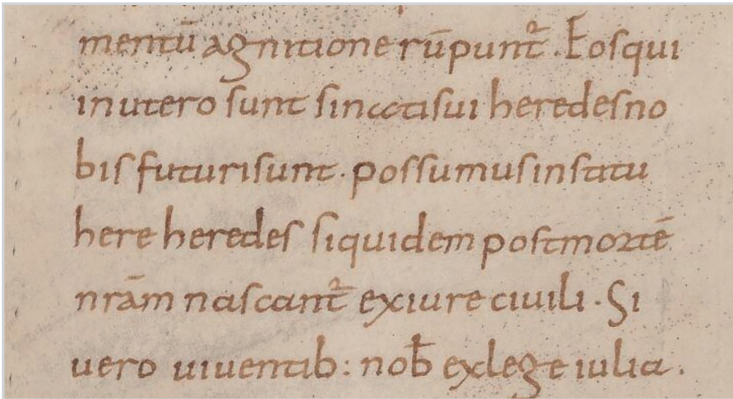 mentū agnitione rūpunt᷑. Eos qui
in utero sunt si nati sui heredes no
bis futuri sunt. possumus instatu
here heredes si quidem post mortē
nr̄am nascant᷑ ex iure ciuili. Si
uero uiuentib: nob̄ ex lege iulia.